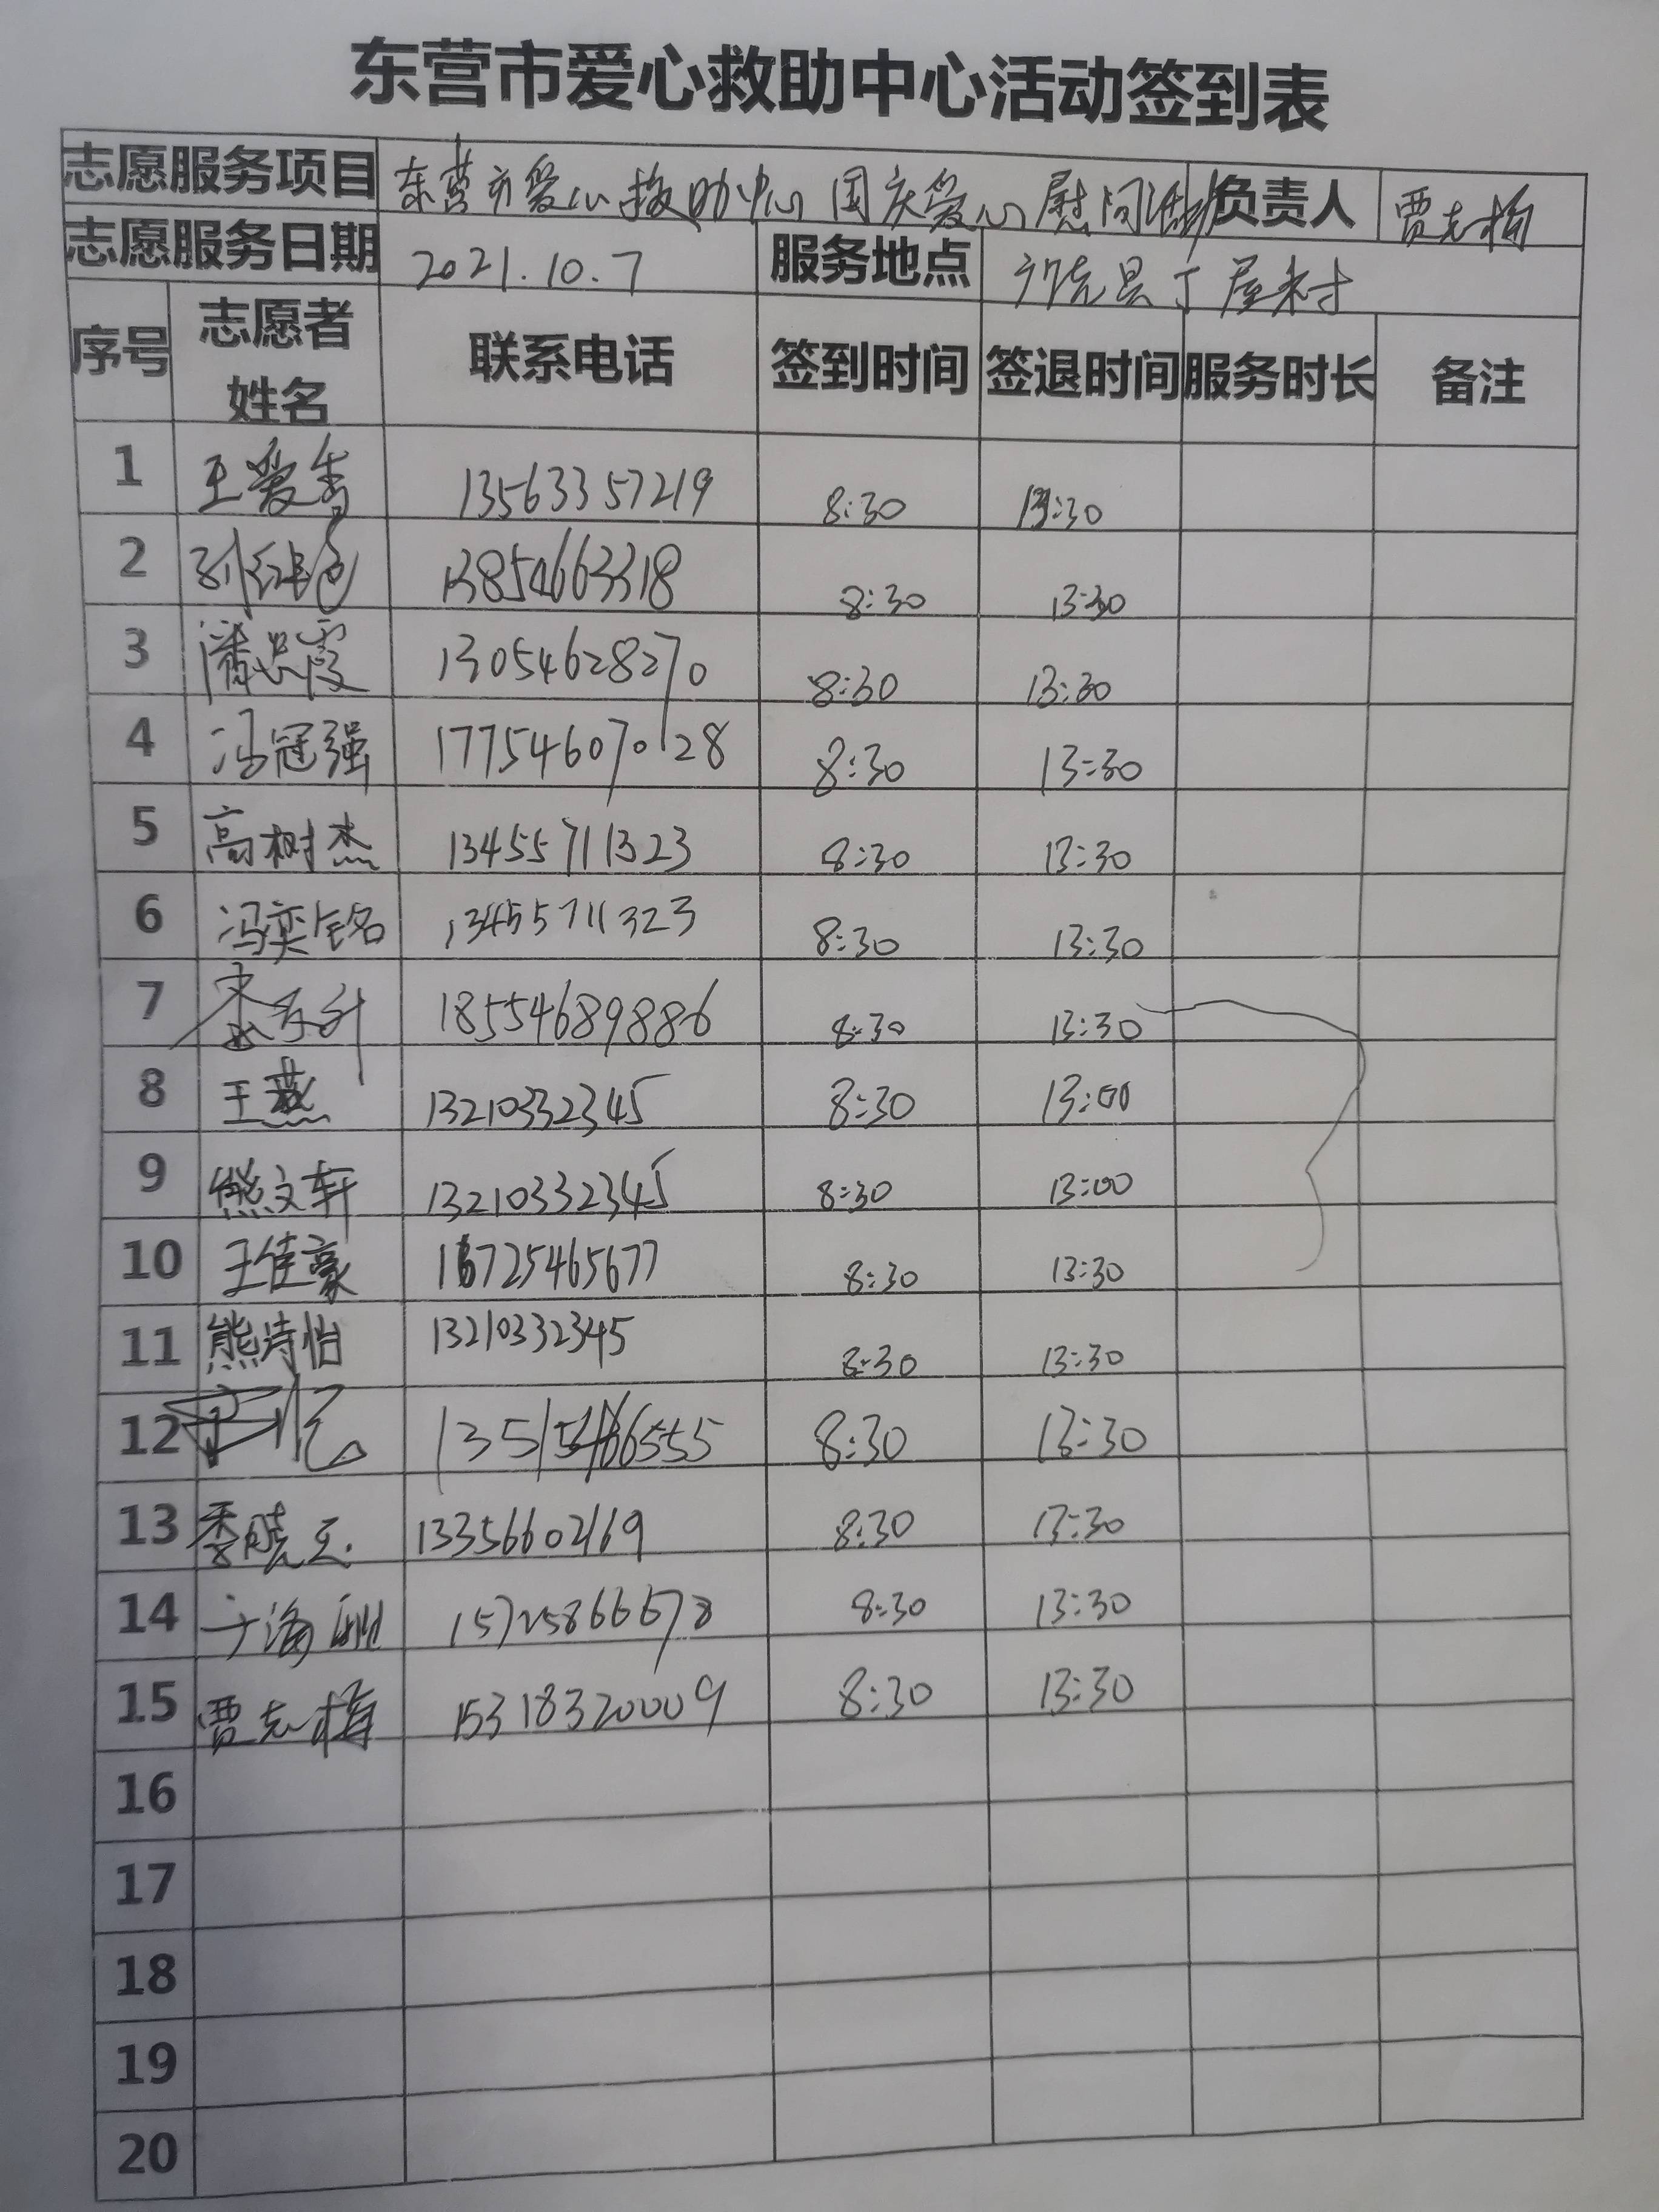 东营市爱心救助中心活动签到表
志愿服务项目 东营市爱心救助中心国庆爱心慰问活动 负责人 贾克梅
志愿服务日期 2021.10.7 服务地点 县丁屋村
序号 志愿者姓名 联系电话 签到时间 签退时间 服务时长 备注
1 王爱香 13563357219 8:30 13:30
2 孙红色 13854663318 8:30 13:30
3 潘忠霞 13054628270 8:30 13:30
4 冯冠强 17754607028 8:30 13:30
5 高树杰 13455711323 8:30 13:30
6 冯奕铭 13455711323 8:30 13:30
7 18554689886 8:30 13:30
8 王燕 13210332345 8:30 13:00
9 熊文轩 13210332345 8:30 13:00
10 王佳豪 16725465677 8:30 13:30
11 熊诗怡 13210332345 8:30 13:30
12 8:30 13:30
13 季晓玉 13356602169 8:30 13:30
14 于海洲 15725866678 8:30 13:30
15 贾克梅 15318320009 8:30 13:30
16
17
18
19
20